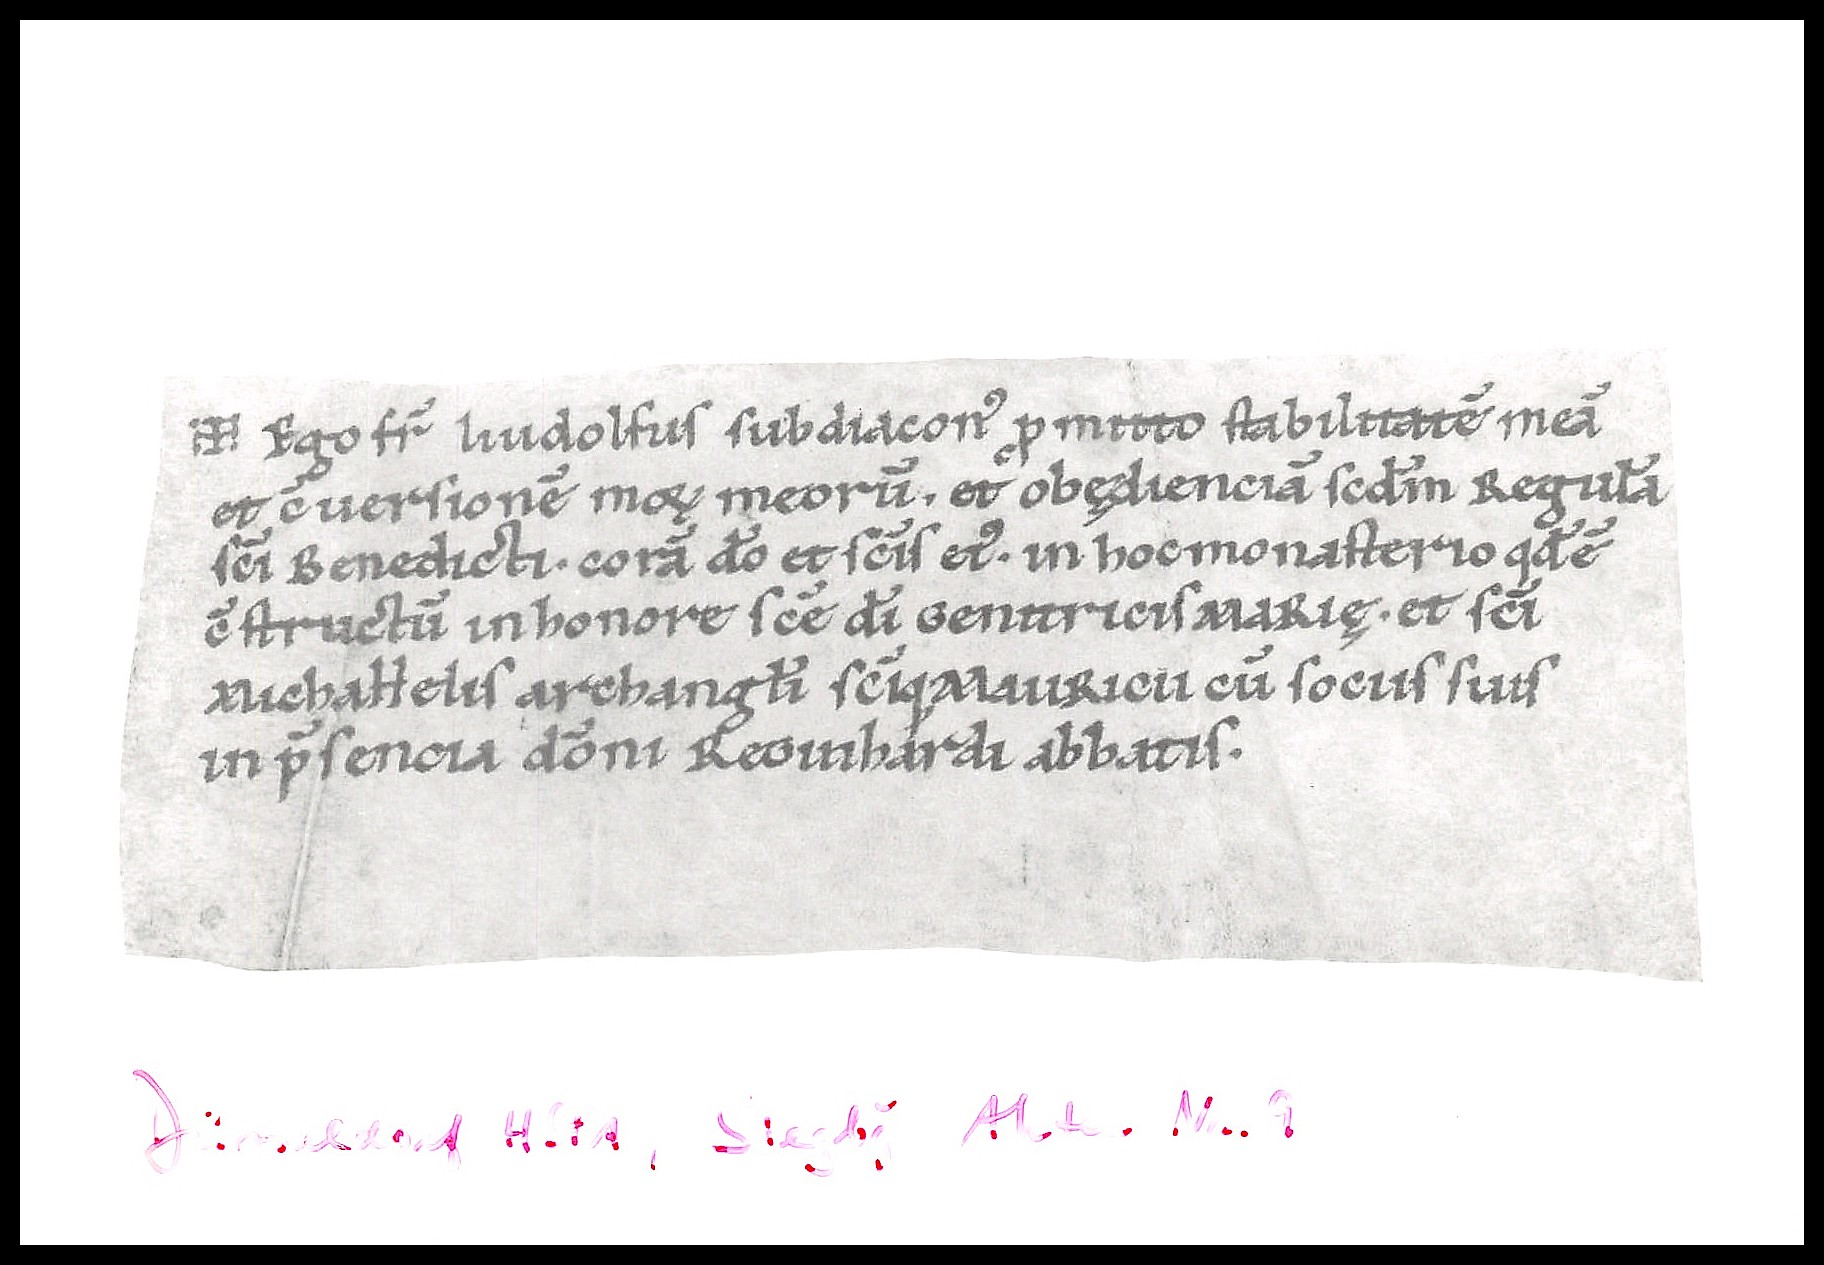 Ego fr̄ liudolfus subdiacon᾽ ꝓmitto stabilitatē meā
et c̄uersionē moꝝ meorū. et obędienciā scdm̄ Regulā
sc̄i Benedicti. corā dō et sc̄is ei᾽. in hoc monasterio qd̄ ē
c̄structū in honore sc̄e dī Genitricis MARIę. et sc̄i
Michahelis archangłi sc̄iq; MauRicii cū sociis suis
in p̄sencia dōni Reginhardi abbatis.
Düsseldorf HStA, Siegbg Akten Nr.